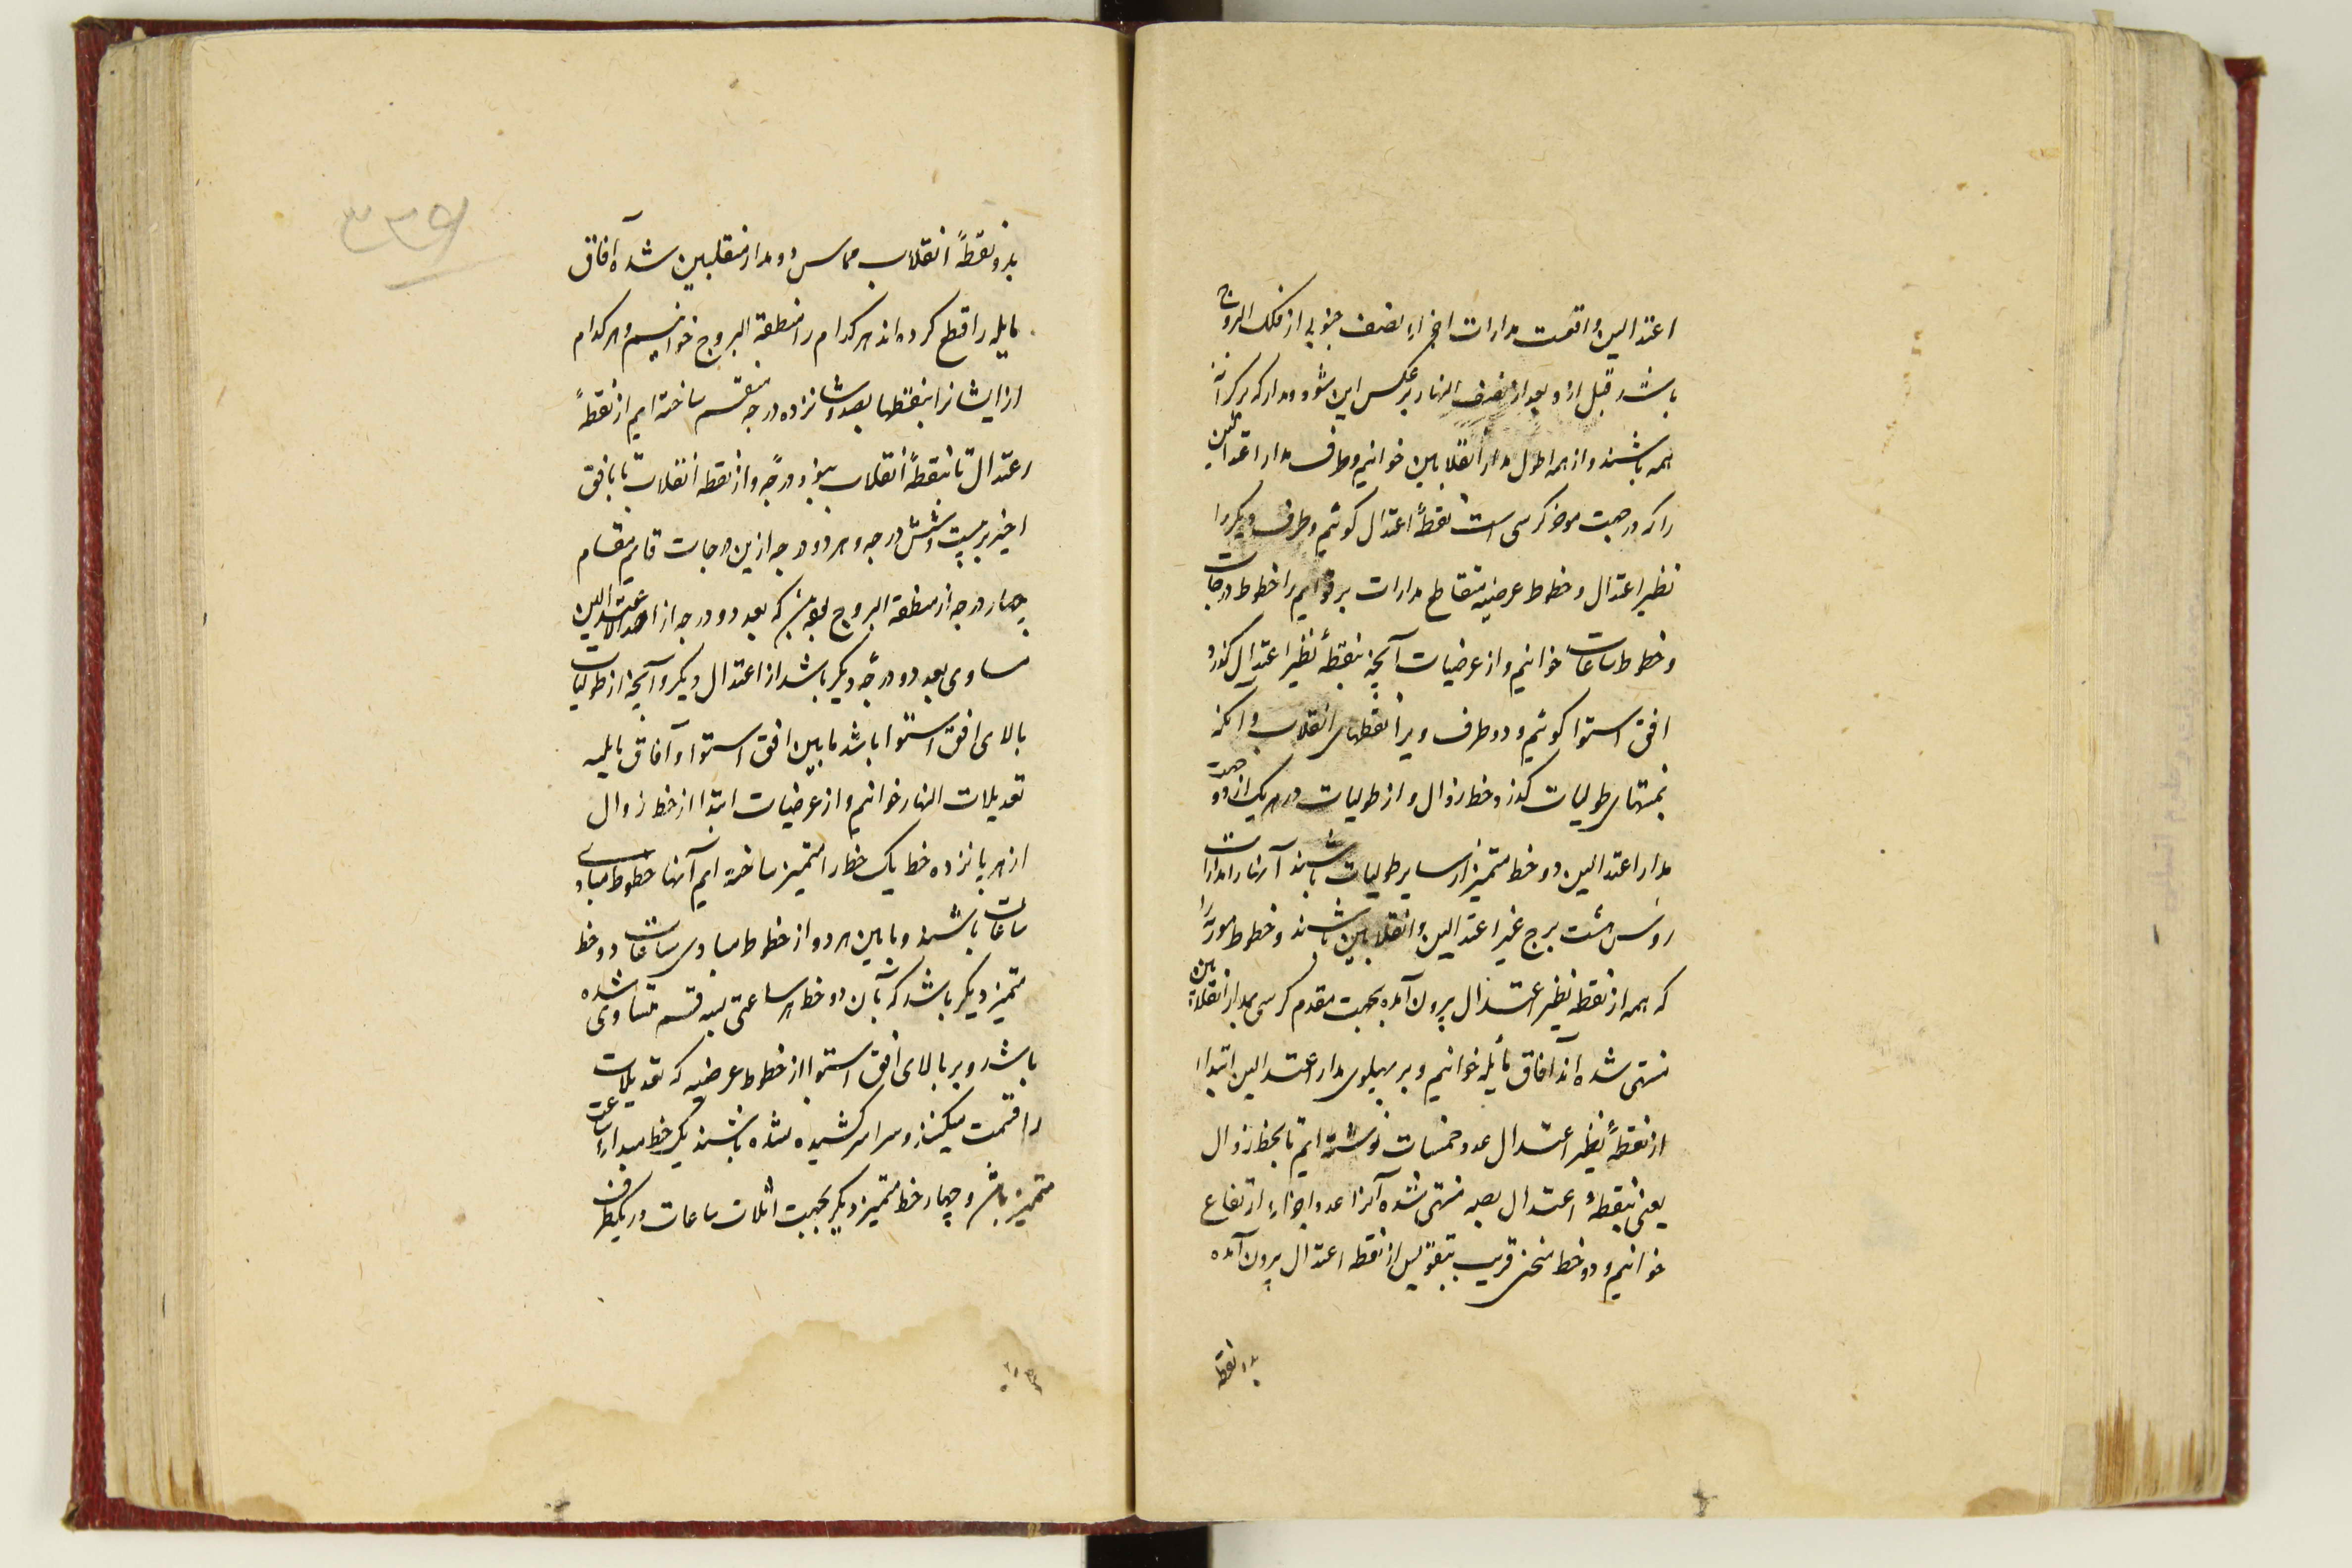 اعتدالین واقعست مدارات اجزاء نصف جنوبی از فلک البروج
باشد قبل از و بعد از نصف النهار بر عکس این شود و مدار که بر کرانه
همه باشند و از همه اطول مدار انقلابین خوانیم و طرف مدار اعتدالین
را که در جهت موضع کرسی است نقطهٔ اعتدال کوئیم و طرف دیگر را
نظیر اعتدال و خطوط عرضیه متقاطع مدارات بر قوایم را خطوط درجات
و خطوط ساعات خوانیم و از عرضیات آنچه بنقطهٔ نظیر اعتدال گذرد
افق استوا کوئیم و دو طرف ویرا نقطهای انقلاب و آنکه
بمنتهای طولیات گذرد خط زوال و از طولیات در هر یک از دو جهت
مدار اعتدالین دو خط متمیز از سایر طولیات باشند آنها را مدارات
روس هشت برج غیر اعتدالین و انقلابین باشند و خطوط موربه را
که همه از نقطه نظیر اعتدال بیرون آمده بجهت مقدم کرسی بمدار انقلابین
منتهی شده اند آفاق مایله خوانیم و بر پهلوی مدار اعتدالین ابتدا
از نقطهٔ نظیر اعتدال عدد خمسات نوشته ایم تا بخط زوال
یعنی بنقطهٔ اعتدال بصد منتهی شده آنرا عدد اجزاء ارتفاع
خوانیم و دو خط منحنی قریب بتقویس از نقطه اعتدال بیرون آمده
بدو نقطه
۳۳۹
بدو نقطهٔ انقلاب مماس دو مدار منقلبین شده آفاق
مایله را قطع کرده اند هر کدام را منطقة البروج خوانیم و هر کدام
از ایشانرا بنقطها بصد و شانزده درجه منقسم ساخته ایم از نقطهٔ
اعتدال تا بنقطهٔ انقلاب بنود درجه و از نقطه انقلاب تا بافق
اخیر بر بیست و شش درجه و هر دو درجه ازین درجات قایم مقام
چهار درجه از منطقة البروج بود که بعد دو درجه از احد الاعتدالین
مساوی بعد دو درجه دیگر باشد از اعتدال دیگر و آنچه از طولیات
بالای افق استوا باشد مابین افق استوا و آفاق مایله
تعدیلات النهار خوانیم و از عرضیات ابتدا از خط زوال
از هر پانزده خط یک خط را متمیز ساخته ایم آنها خطوط مبادی
ساعات باشند و مابین هر دو از خطوط مبادی ساعات دو خط
متمیز دیگر باشد که بآن دو خط هر ساعتی بسه قسم متساوی شده
باشد و بر بالای افق استوا از خطوط عرضیه که تعدیلات
را قسمت میکنند و سراسر کشیده شده باشند یک خط مبدا ساعت
متمیز باشد و چهار خط متمیز دیگر بجهت اثلاث ساعات در یکطرف